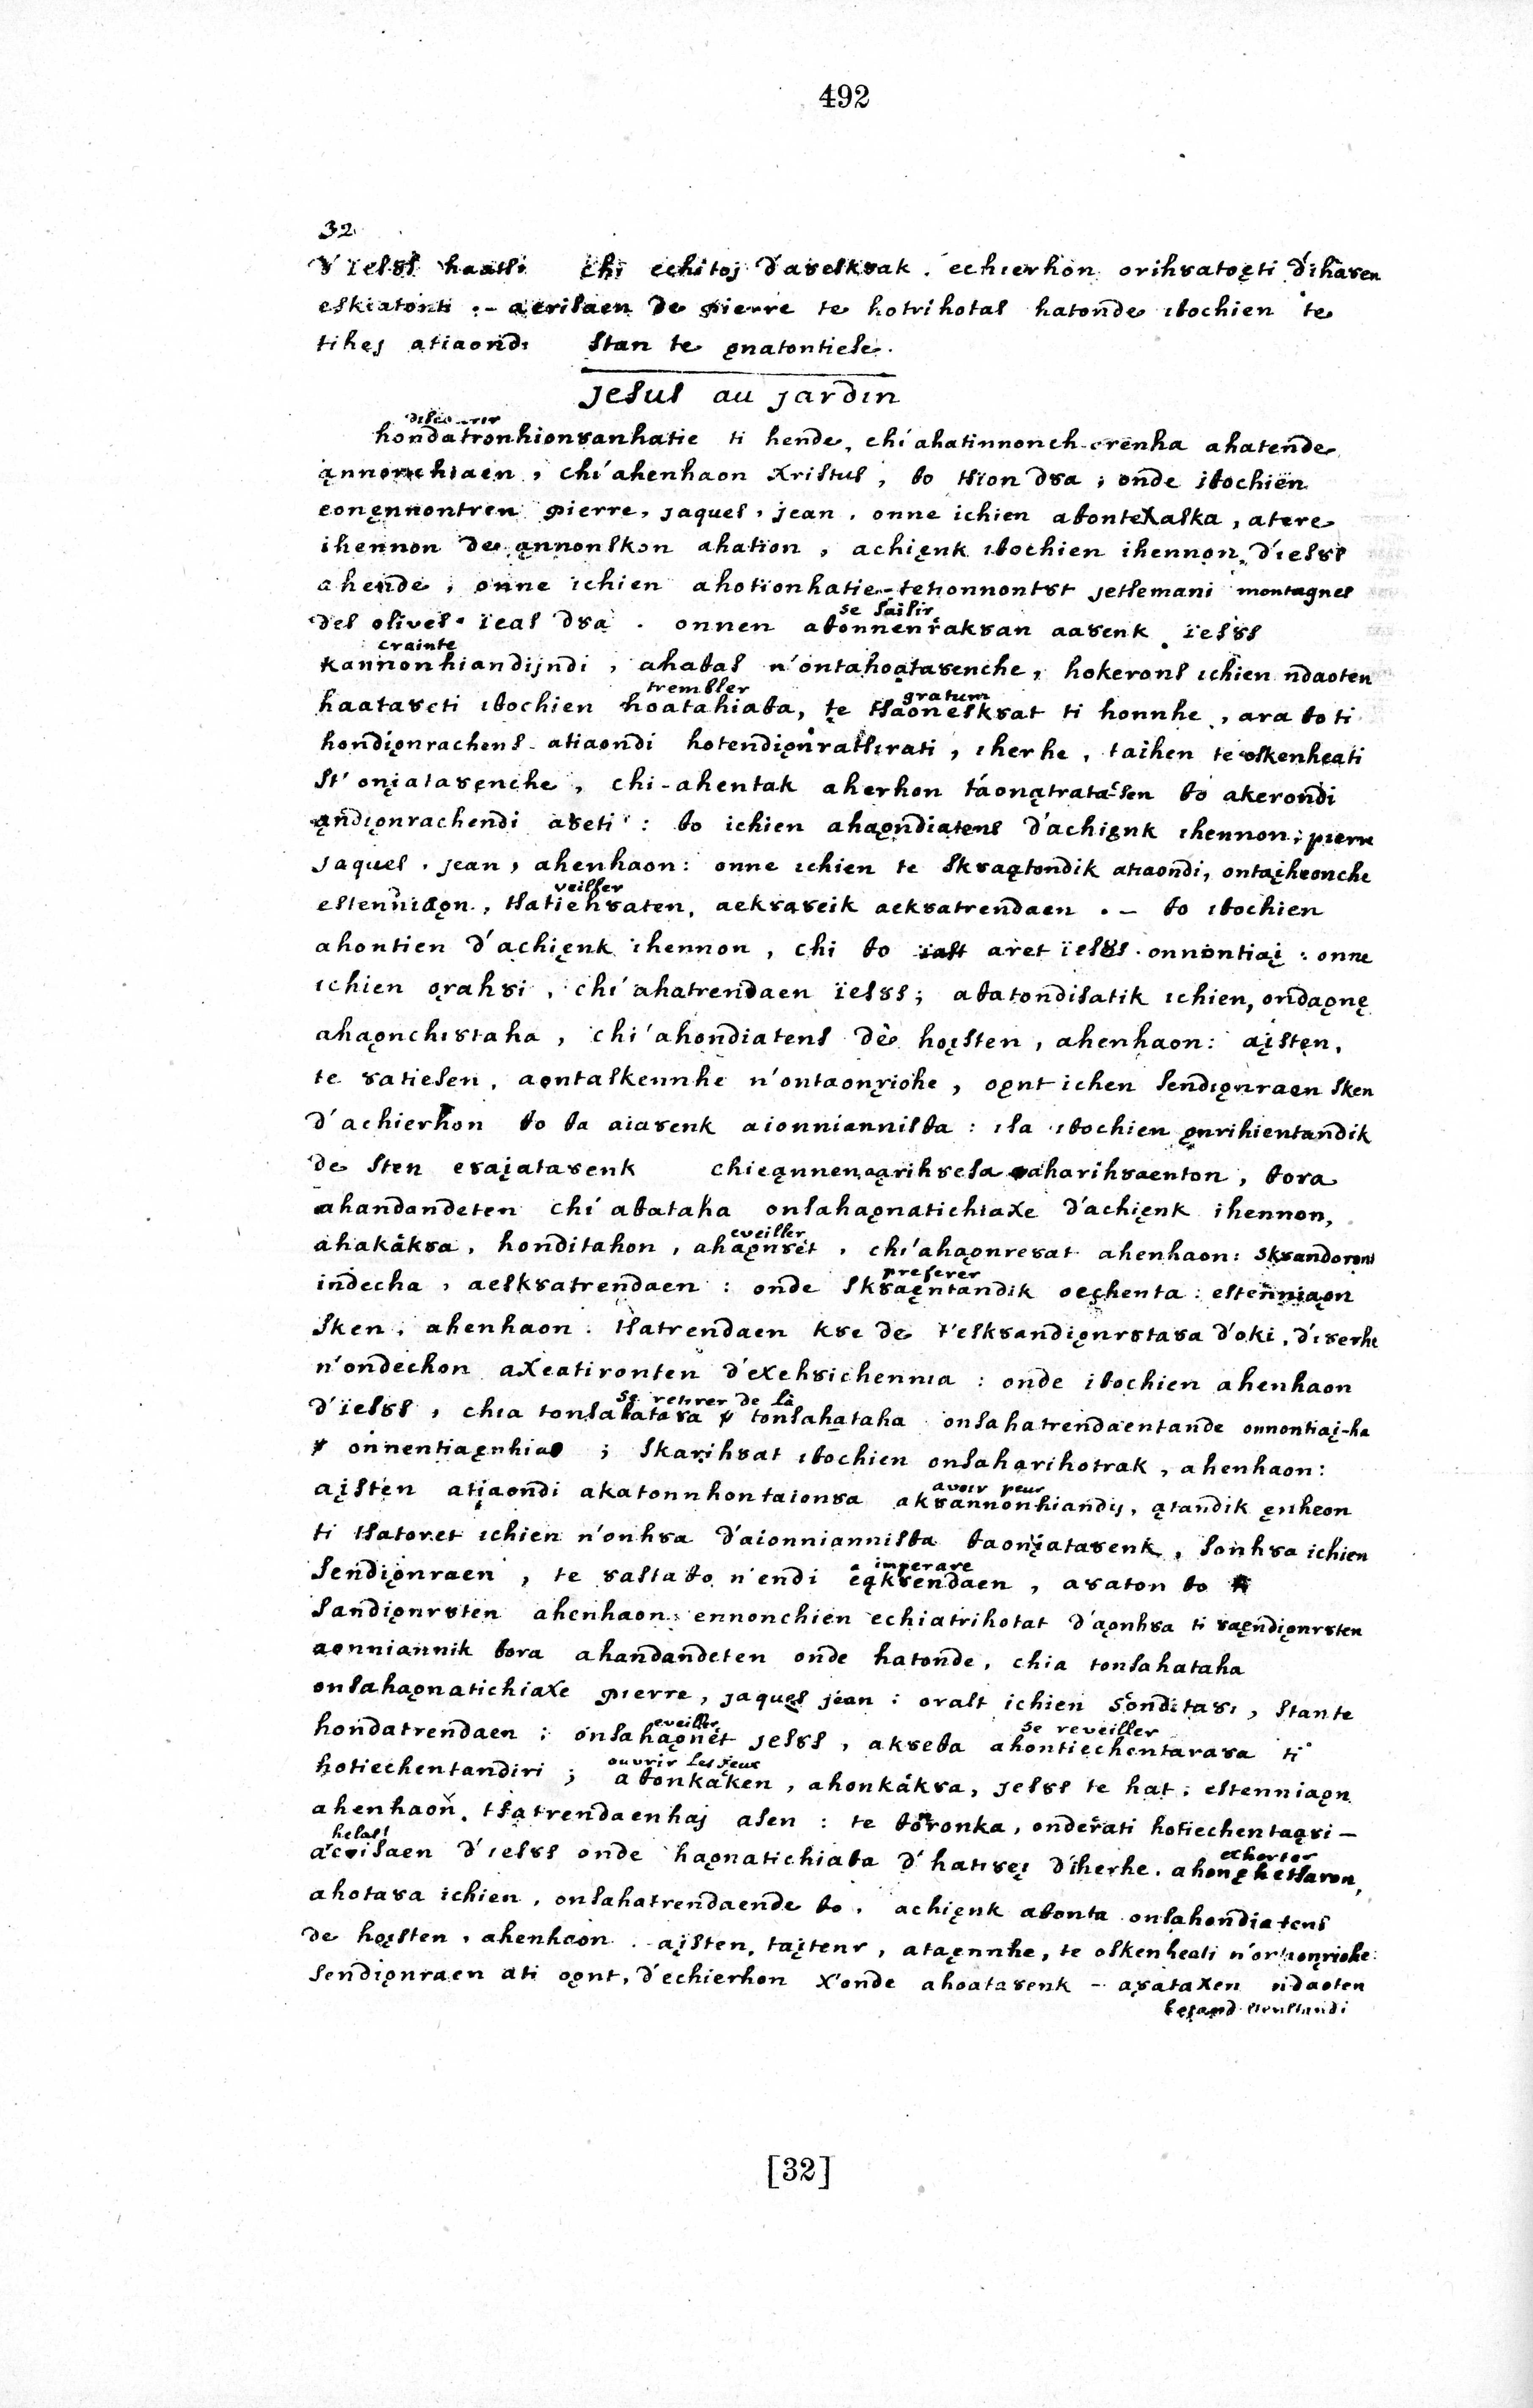 492
32
ȣ ïesȣs haatsi chi echitoj d'aȣeskȣak. echierhon orihȣatoęti d'ihaȣen
eskiatonti .- aerisaen de pierre te hotrihotas hatonde iθochien te
tihej atiaondi stan te ǫnatontiese.
Jesus au jardin
discourir
hondatronhionȣanhatie ti hende, chi'ahatinnonch-orenha ahatende
ąnnonchiaen, chi'ahenhaon Xristus, θo tsïon dȣa; onde iθochien
eonęnnontren pierre, jaques, jean. onne ichien aθonteχaska, atere
ihennon de ąnnonskon ahation, achięnk iθochien ihennon, d'iesȣs
ahende, onne ichien ahotionhatie-tetionnontȣt jetsemani montagnes
des olives. ïeas dȣa. onnen aθonnenrakȣan aaȣenk. ïesȣs
se saisir
crainte
kannonhiandijndi, ahaθas n'ontahoątaȣenche, hokerons ichien ndaoten
haataȣeti iθochien hoatahiaθa, te tsaoneskȣat ti honnhe, ara θo ti
trembler gratum
hondiǫnrachens atiaondi hotendiǫnratsirati, iherhe, taihen te oskenheati
st' oniataȣenche, chi-ahentak aherhon táonątrata-sen θo akerondi
ąndiǫnrachendi aȣeti: θo ichien ahaǫndiatens d'achięnk ihennon; pierre
jaques. jean, ahenhaon: onne ichien te skȣaątondik atiaondi, ontaįheonche
estenniaǫn, tsatiehȣaten, aekȣaȣeik aekȣatrendaen .- θo iθochien
veiller
ahontien d'achięnk ihennon, chi θo aret ïesȣs. onnontiaį: onne
ichien ǫrahȣi, chi'ahatrendaen ïesȣs; aθatondisatik ichien, ondaǫnę
ahaǫnchistaha, chi'ahondiatens de hoįsten, ahenhaon: aįsten,
te ȣatiesen, aontaskennhe n'ontaonįiohe, oǫnt ichen sendiǫnraen sken
d'achierhon θo θa aiaȣenk aionniannisθa: isa iθochien ǫnrihientandik
de sten eȣaįataȣenk chieąnnen ąrihȣesa aharihȣaenton, θora
ahandandeten chi aθataha onsahaǫnatichiaxe d'achięnk ihennon,
ahakákȣa, honditahon, ahaǫnȣet, chi'ahaǫnreȣat ahenhaon: skȣandorons
eveiller
indecha, aeskȣatrendaen: onde skȣaęntandik oeįhenta: estenniaǫn
preferer
sken, ahenhaon: tsatrendaen kȣe de t'eskȣandiǫnrȣtaȣa d'oki, d'iȣerhe
n'ondechon axeatironten d'exehȣichennia: onde iθochien ahenhaon
d'ïesȣs, chia tonsahataȣa tonsahataha onsahatrendaentande onnontiaį-ha
se retirer de là
onnentiaęnhia; skarihȣat iθochien onsaharihotrak, ahenhaon:
aįsten atiaondi akatonnhontaionȣa akȣannonhiandij, ątandik ęiheon
avoir peur
ti tsatoret ichien n'onhȣa d'aionniannisθa θaonįataȣenk, sonhȣa ichien
sendiǫnraen, te ȣastaθo n'endi eąkȣendaen, aȣaton θo
imperare
sandiǫnrȣten ahenhaon: ennonchien echiatrihotat d'aǫnhȣa ti ȣaęndiǫnrȣten
aonniannik θora ahandandeten onde hatonde, chia tonsahataha
onsahaǫnatichiaxe pierre, jaques jean: orast ichien sonditaȣi, stante
hondatrendaen: onsahaǫnet jesȣs, akȣeθa ahontiechentaraȣa ti
eveiller se reveiller
hotiechentandiri; aθonkaken, ahonkákȣa, jesȣs te hat: estenniaǫn
ouvrir les yeux
ahenhaon, tsatrendaenhaj asen: te θoronka, onderati hotiechentaęȣi-
helas!
aerisaen d'iesȣs onde haǫnatichiaθa d'hatiȣeį d'iherhe. ahonęhetsaron,
exhorter
ahotaȣa ichien, onsahatrendaende θo, achięnk aθonta onsahondiatens
de hoįsten, ahenhaon. aįsten, taįtenr, ataęnnhe, te oskenheati
sendiǫnraen ati oǫnt, d'echierhon x'onde ahoataȣenk - aȣataxen ndaoten
[32]